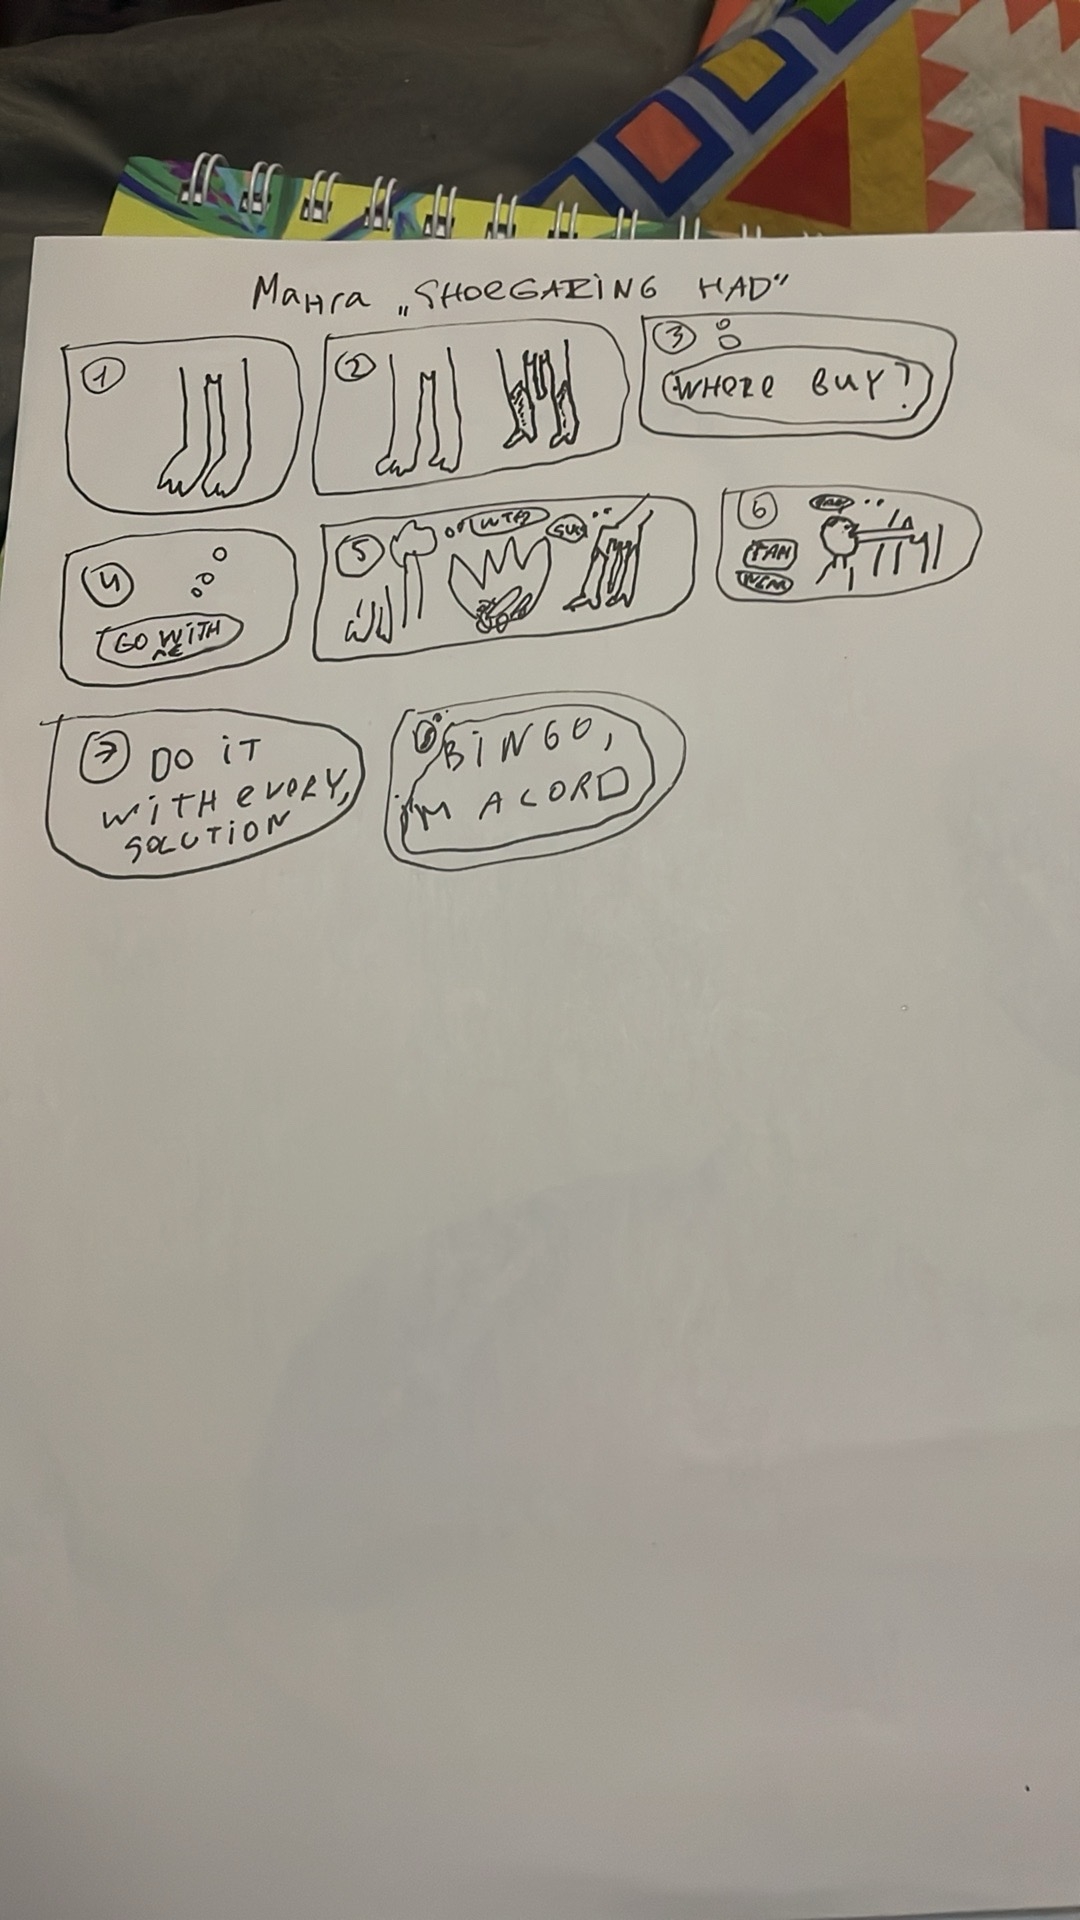 Манга „SHOEGAZING HAD"
1
2
3
WHERE BUY?
4
GO WITH
ME
5
WTF
6
7
DO IT
WITH EVERY,
SOLUTION
8
BINGO,
I'M A LORD